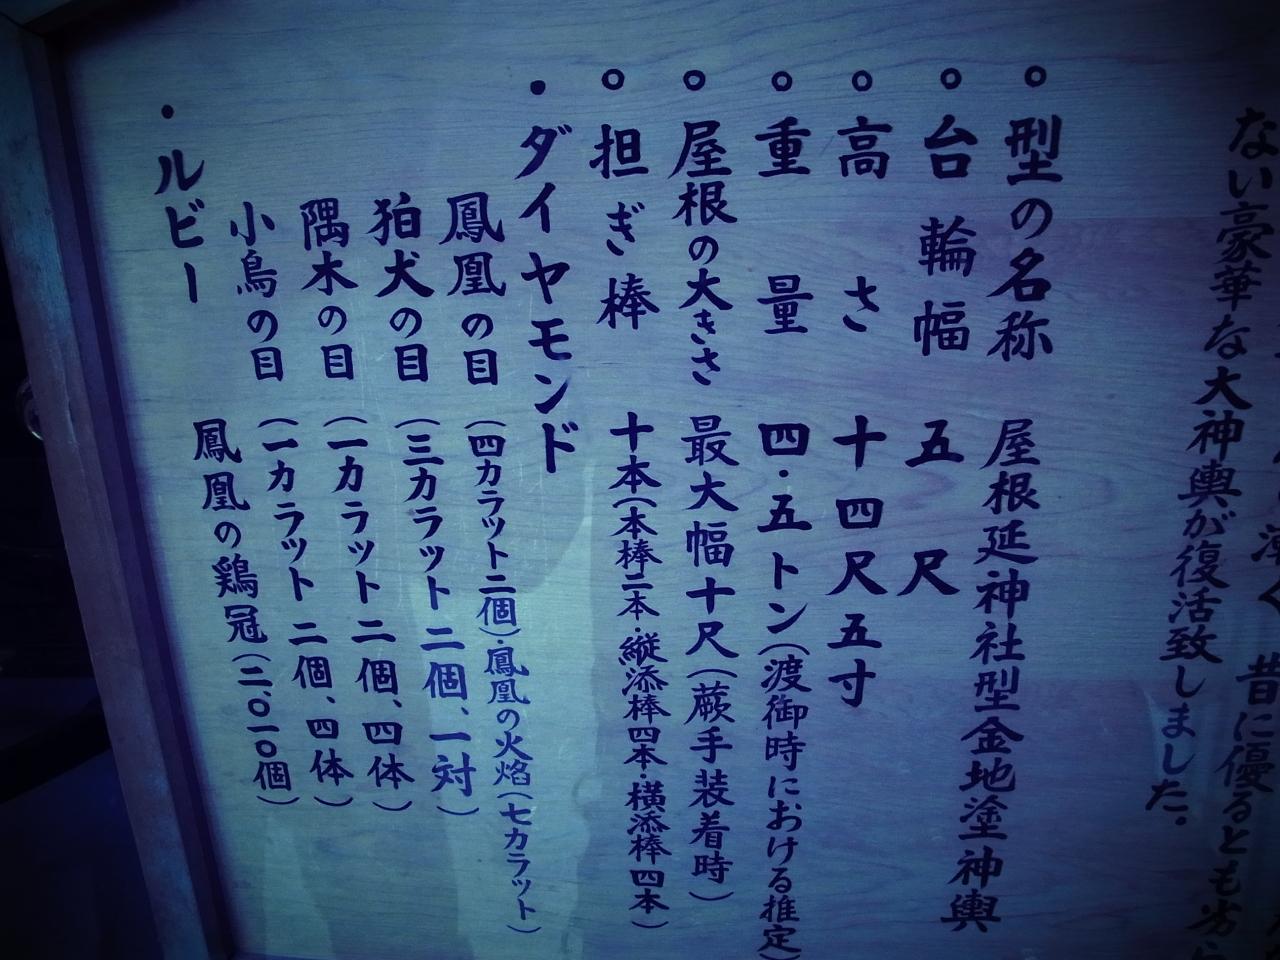 昔に優るとも劣ら
ない豪華な大神輿が復活致しました。
○型の名称 屋根延神社型金地塗神輿
○台輪幅 五尺
○高さ 十四尺五寸
○重量 四・五トン(渡御時における推定)
○屋根の大きさ 最大幅十尺(蕨手装着時)
○担ぎ棒 十本(本棒二本・縦添棒四本・横添棒四本)
・ダイヤモンド
鳳凰の目(四カラット二個)・鳳凰の火焰(七カラット)
狛犬の目(三カラット二個、一対)
隅木の目(一カラット二個、四体)
小鳥の目(一カラット二個、四体)
・ルビー 鳳凰の鶏冠(二、〇一〇個)